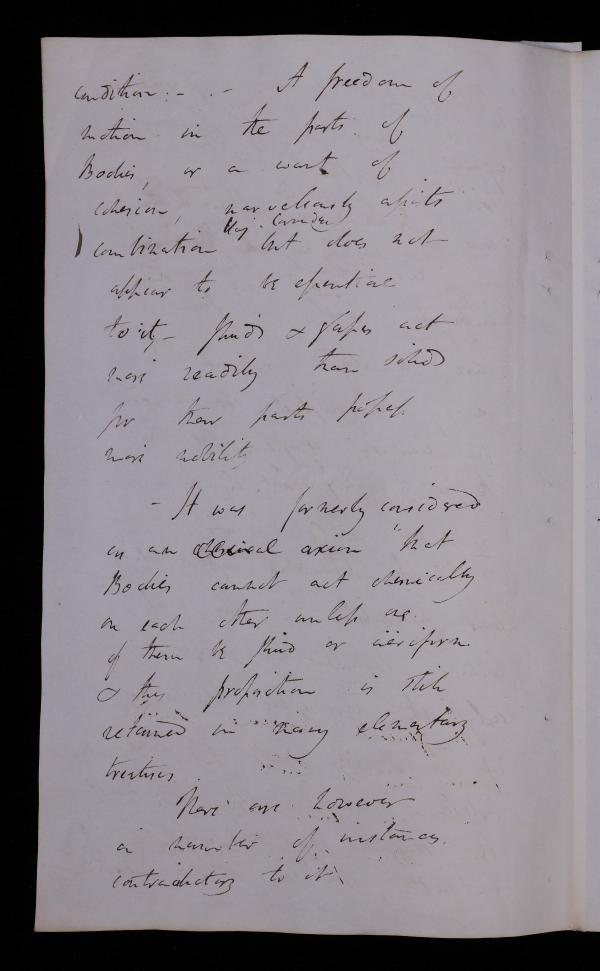 condition. - . - A freedom of
motion in the parts of
Bodies, or a want of
cohesion, marvelously assists
combination but does not
appear to be essential
to it, - fluids & gasses act
more readily than solids
for their parts possess
more mobility
- It was formerly considered
as an axiom "that
Bodies cannot act chemically
on each other unless one
of them be fluid or aeriform
& this proposition is still
retained in many elementary
treatises.
There are however
a number of instances
contradictory to it